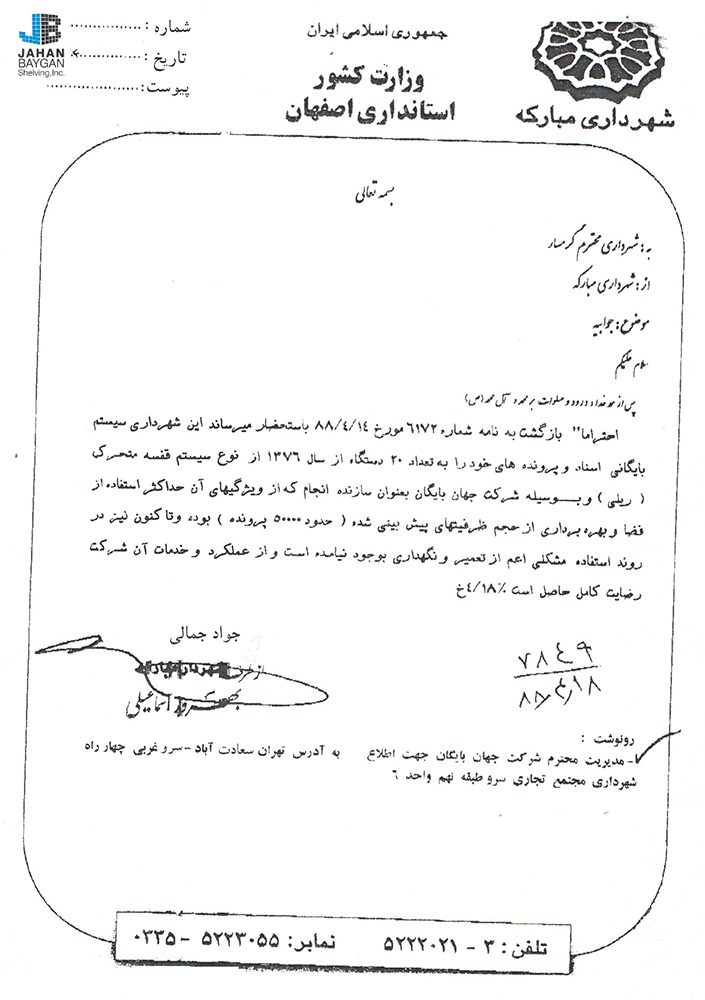 جمهوری اسلامی ایران
وزارت کشور
استانداری اصفهان
شهرداری مبارکه
JB
JAHAN
BAYGAN
Shelving,Inc.
شماره :
تاریخ :
پیوست:
بسمه تعالی
به: شهرداری محترم گرمسار
از: شهرداری مبارکه
موضوع: جوابیه
سلام علیکم
پس از حمد خداو درود و صلوات بر محمد و آل محمد (ص)
احتراما" بازگشت به نامه شماره ۶۱۷۲ مورخ ۸۸/۴/۱۴ باستحضار میرساند این شهرداری سیستم
بایگانی اسناد و پرونده های خود را به تعداد ۲۰ دستگاه از سال ۱۳۷۶ از نوع سیستم قفسه متحرک
( ریلی ) و بوسیله شرکت جهان بایگان بعنوان سازنده انجام که از ویژگیهای آن حداکثر استفاده از
فضا و بهره برداری از حجم ظرفیتهای پیش بینی شده ( حدود ۵۰۰۰۰ پرونده ) بوده و تا کنون نیز در
روند استفاده مشکلی اعم از تعمیر و نگهداری بوجود نیامده است و از عملکرد و خدمات آن شرکت
رضایت کامل حاصل است ٪۴/۱۸خ
جواد جمالی
از طرف
اسماعیلی
۷۸۴۹
۸۸/۴/۱۸
رونوشت :
- مدیریت محترم شرکت جهان بایگان جهت اطلاع به آدرس تهران سعادت آباد -سرو غربی چهار راه
شهرداری مجتمع تجاری سرو طبقه نهم واحد ۶
تلفن: ۳ - ۵۲۲۲۰۲۱ نمابر: ۵۲۲۳۰۵۵ -۰۳۳۵